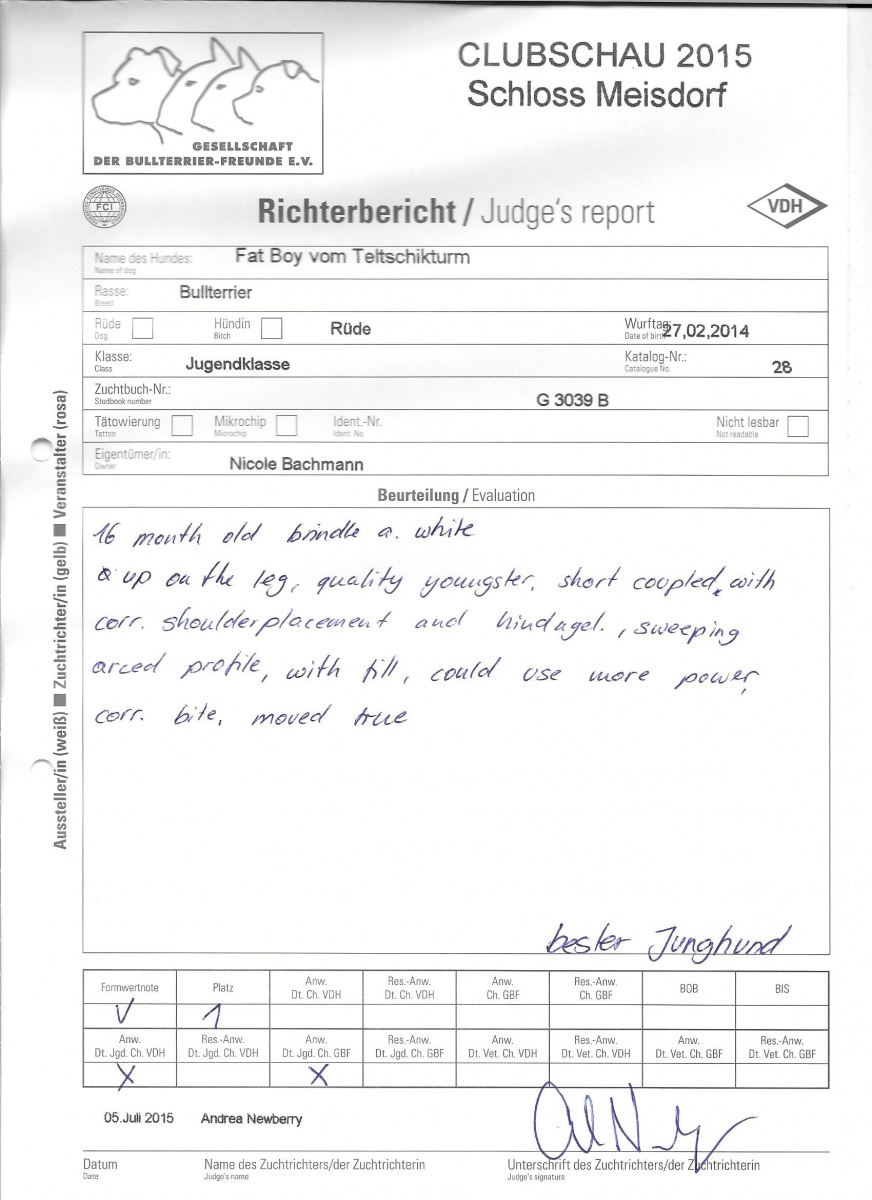 CLUBSCHAU 2015
Schloss Meisdorf
GESELLSCHAFT
DER BULLTERRIER-FREUNDE E.V.
FCI
Richterbericht / Judge's report
VDH
Name des Hundes: Fat Boy vom Teltschikturm
Name of dog
Rasse: Bullterrier
Breed
Rüde Hündin Rüde Wurftag: 27,02,2014
Dog Bitch Date of birth
Klasse: Jugendklasse Katalog-Nr.: 28
Class Catalogue No.
Zuchtbuch-Nr.: G 3039 B
Studbook number
Tätowierung Mikrochip Ident.-Nr. Nicht lesbar
Tattoo Microchip Ident. No. Not readable
Eigentümer/in: Nicole Bachmann
Owner
Aussteller/in (weiß) ■ Zuchtrichter/in (gelb) ■ Veranstalter (rosa)
Beurteilung / Evaluation
16 month old brindle a. white
up on the leg, quality youngster, short coupled, with
corr. shoulderplacement and hindagel., sweeping
arced profile, with fill, could use more power,
corr. bite, moved true
bester Junghund
Formwertnote Platz Anw. Dt. Ch. VDH Res.-Anw. Dt. Ch. VDH Anw. Ch. GBF Res.-Anw. Ch. GBF BOB BIS
V 1
Anw. Dt. Jgd. Ch. VDH Res.-Anw. Dt. Jgd. Ch. VDH Anw. Dt. Jgd. Ch. GBF Res.-Anw. Dt. Jgd. Ch. GBF Anw. Dt. Vet. Ch. VDH Res.-Anw. Dt. Vet. Ch. VDH Anw. Dt. Vet. Ch. GBF Res.-Anw. Dt. Vet. Ch. GBF
X X
05.Juli 2015 Andrea Newberry
Datum Name des Zuchtrichters/der Zuchtrichterin Unterschrift des Zuchtrichters/der Zuchtrichterin
Date Judge's name Judge's signature